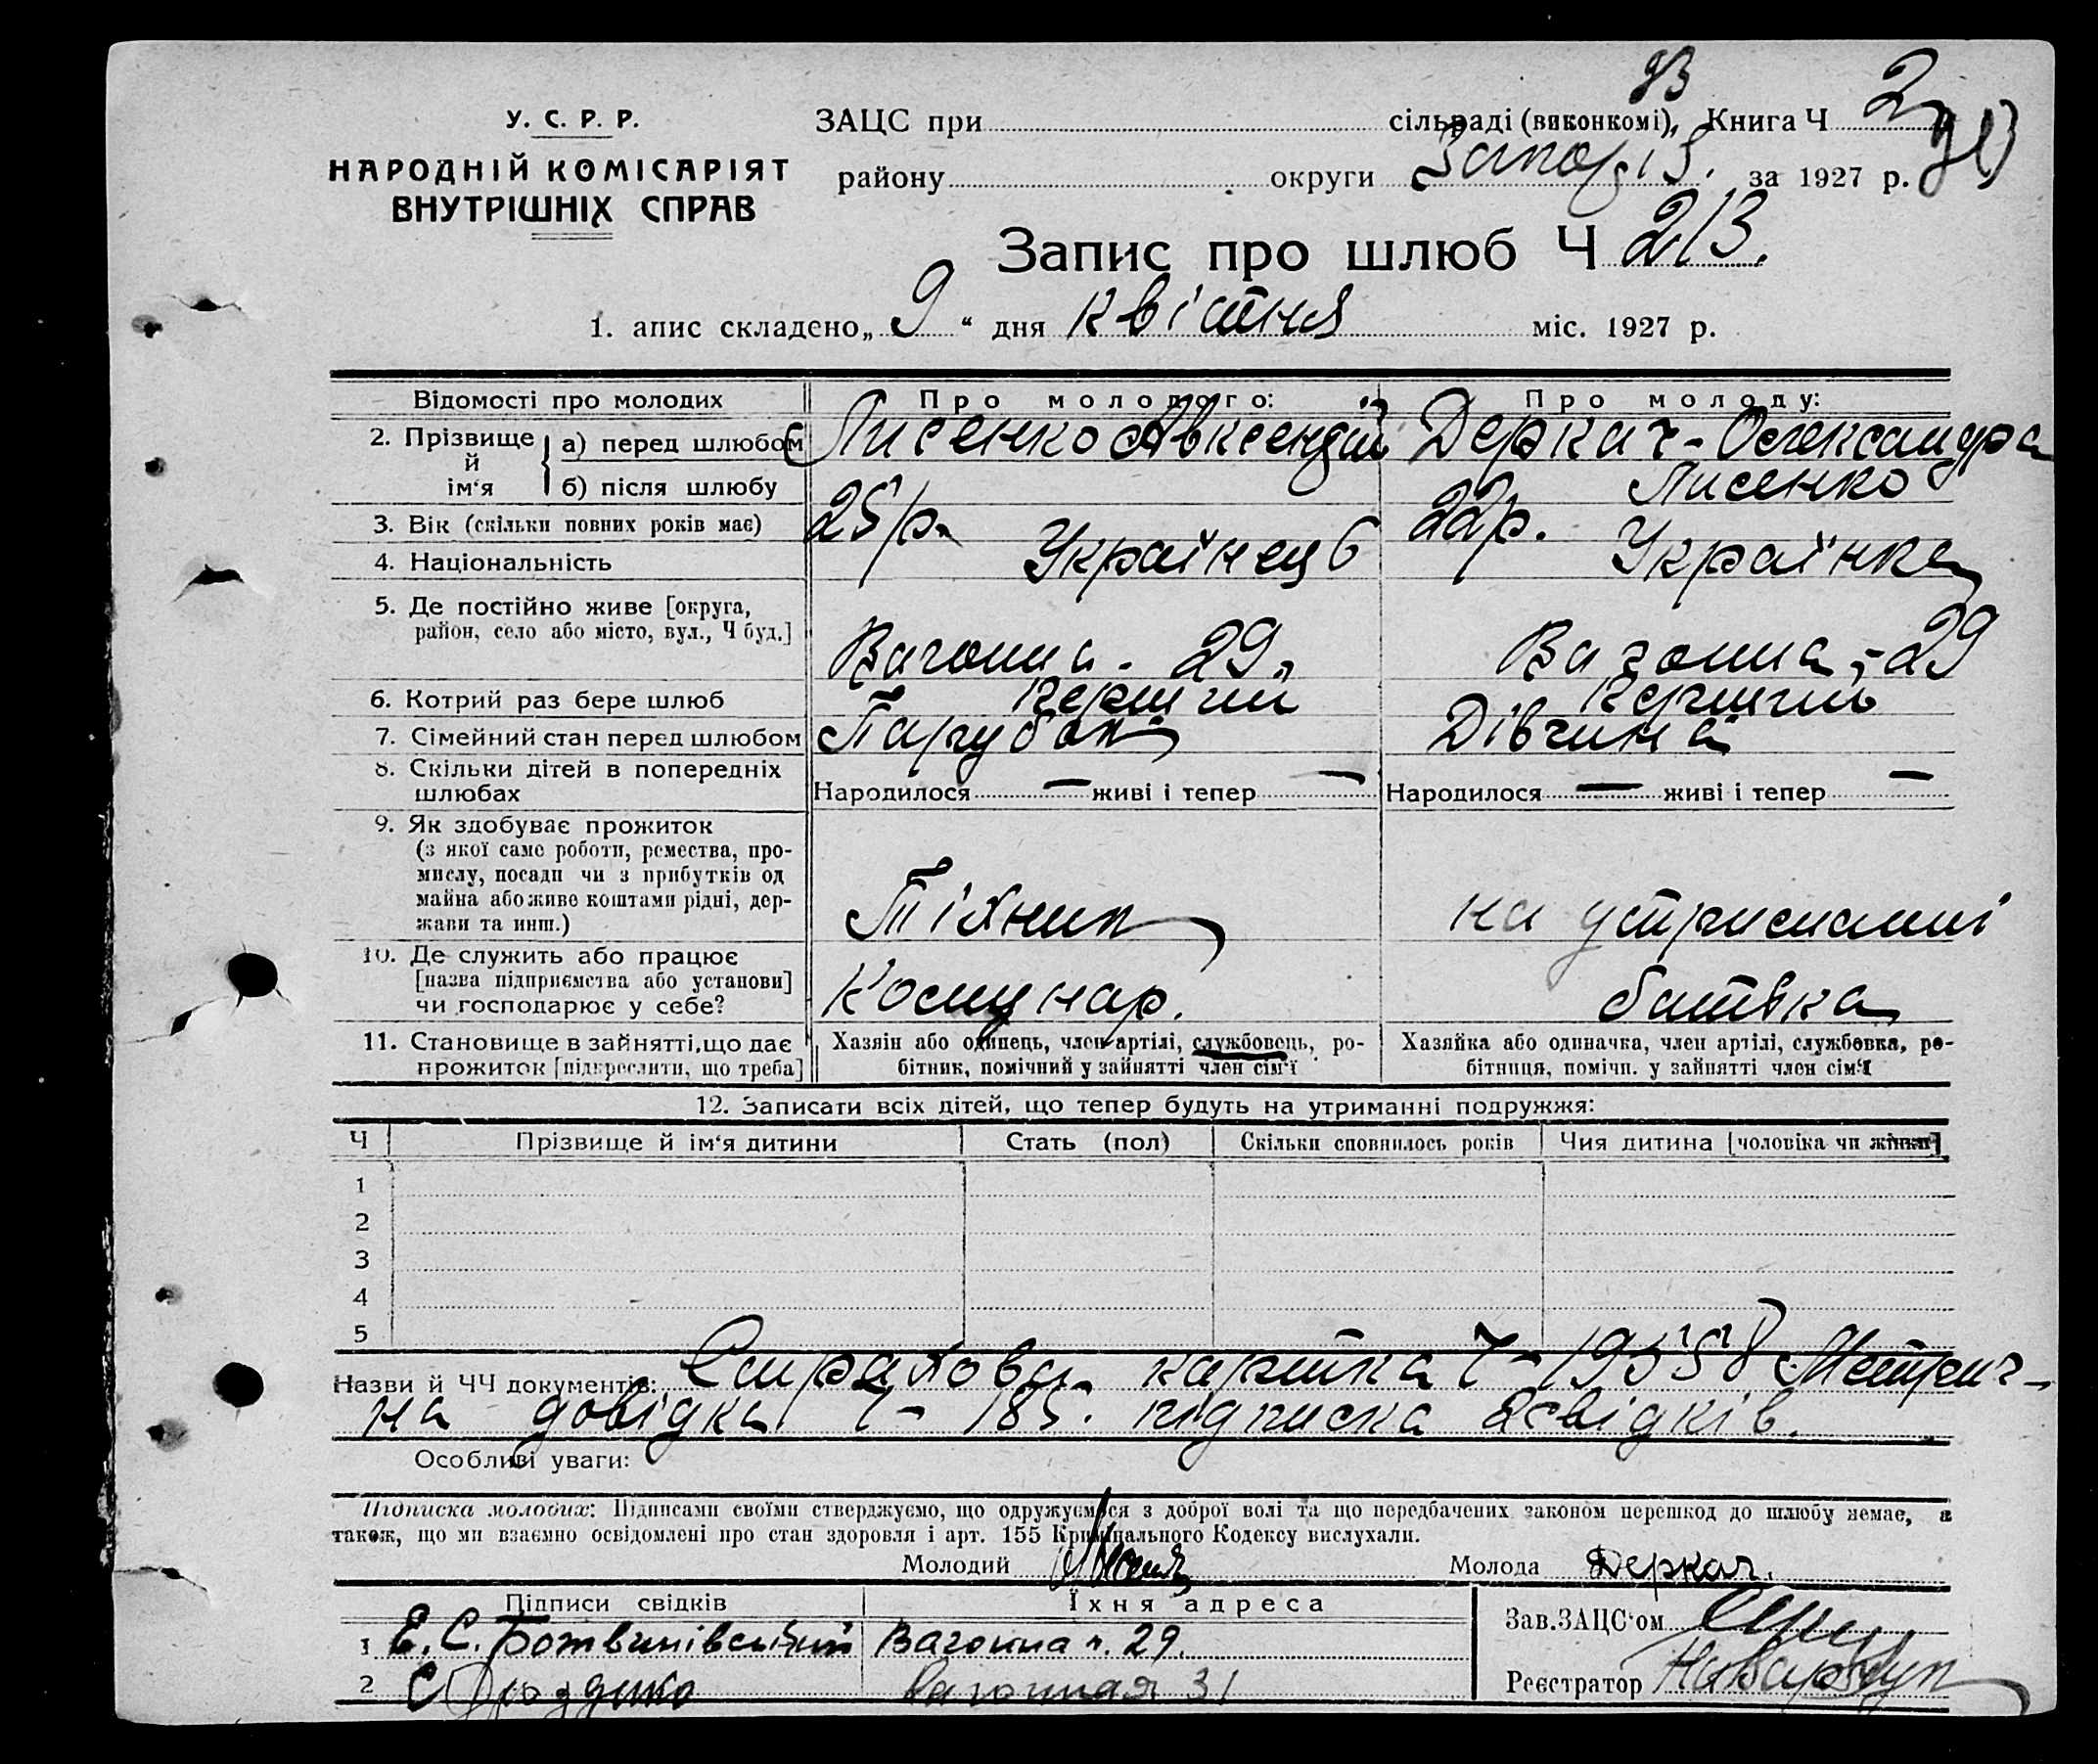 У. С. Р. Р.
НАРОДНІЙ КОМІСАРІЯТ
ВНУТРІШНІХ СПРАВ
ЗАЦС при сільраді (виконкомі), Книга Ч 2
району округи за 1927 р.
Запис про шлюб Ч 213.
1. апис складено „ 9 “ дня квітня міс. 1927 р.
Відомості про молодих Про молодого: Про молоду:
2. Прізвище й ім‘я а) перед шлюбом Лисенко Авксендій Деркач - Олександра
б) після шлюбу Лисенко
3. Вік (скільки повних років має) 25 р. 22 р.
4. Національність Українець Українка
5. Де постійно живе [округа,
район, село або місто, вул., Ч буд.] Вагонна - 29. Вагонна - 29
6. Котрий раз бере шлюб перший перший
7. Сімейний стан перед шлюбом Парубок Дівчина
8. Скільки дітей в попередніх
шлюбах Народилося — живі і тепер — Народилося — живі і тепер —
9. Як здобуває прожиток
(з якої саме роботи, ремества, про-
мислу, посади чи з прибутків од
майна або живе коштами рідні, дер-
жави та инш.) Тіхник на утриманні
10. Де служить або працює
[назва підприємства або установи]
чи господарює у себе? Комунар. батька
11. Становище в зайнятті, що дає
прожиток [підкреслити, що треба]
Хазяїн або одинець, член артілі, службовець, ро-
бітник, помічний у зайнятті член сім‘ї
Хазяйка або одиначка, член артілі, службовка, ро-
бітниця, помічн. у зайнятті член сім‘ї
12. Записати всіх дітей, що тепер будуть на утриманні подружжя:
Ч Прізвище й ім‘я дитини Стать (пол) Скільки сповнилось років Чия дитина [чоловіка чи жінки]
1
2
3
4
5
Назви й ЧЧ документів: Страхова картка Ч - 19558 Метрич-
на довідка Ч - 185. підписка 2 свідків.
Особливі уваги:
Підписка молодих: Підписами своїми стверджуємо, що одружуємося з доброї волі та що передбачених законом перешкод до шлюбу немає, а
також, що ми взаємно освідомлені про стан здоровля і арт. 155 Кримінального Кодексу вислухали.
Молодий Молода Деркач.
Підписи свідків Їхня адреса
1 Е. С. Ботвинівський Вагонна ч. 29.
2 С Дрозденко Вагонная 31
Зав. ЗАЦС‘ом
Реєстратор